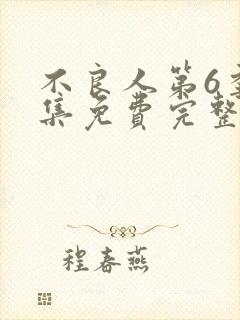 不良人第6季
集免费完整
程春燕